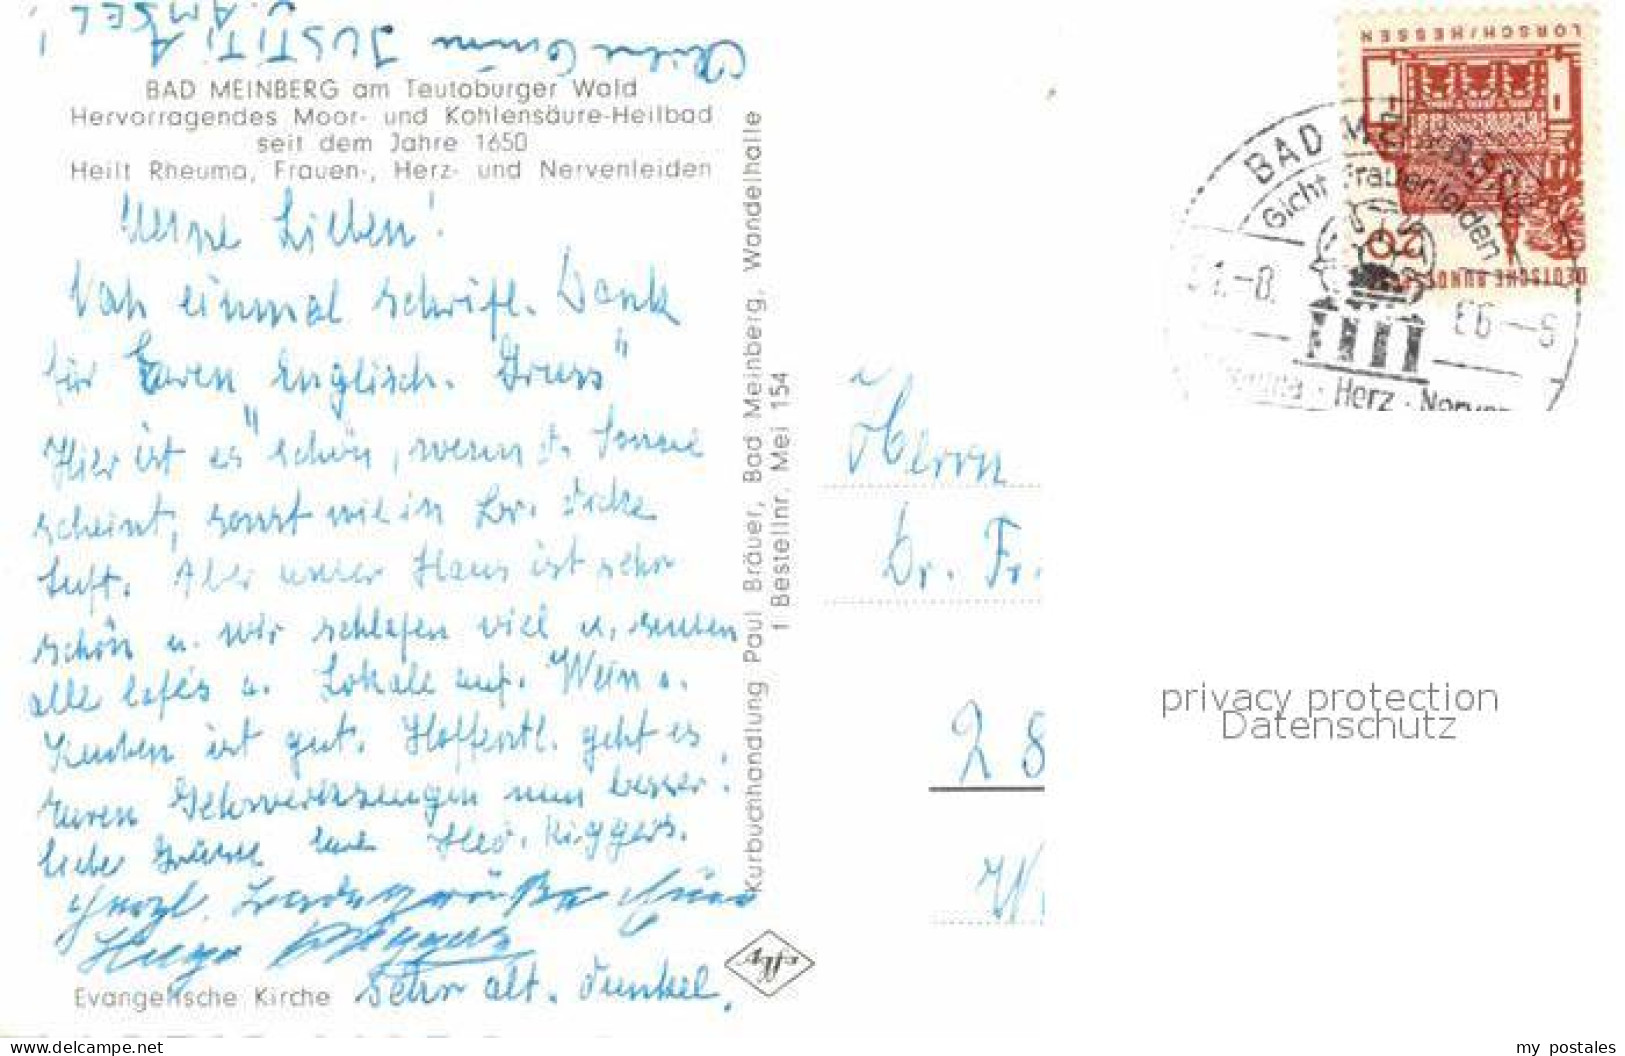 JUSTITI AMSEL!
BAD MEINBERG am Teutoburger Wald
Hervorragendes Moor- und Kohlensäure-Heilbad
seit dem Jahre 1650
Heilt Rheuma, Frauen-, Herz- und Nervenleiden
Meine Lieben!
Noch einmal schriftl. Dank
für Euren "Englisch. Gruss"
Hier ist es schön, wenn d. Sonne
scheint, sonst wie in Br. dicke
Luft. Aber unser Haus ist sehr
schön u. wir schlafen viel u. suchen
alle Cafés u. Lokale auf. Wein u.
Kuchen ist gut. Hoffentl. geht es
Euren nun besser!
liebe Grüsse Eure Riggers.
Herzl.
Helga Riggers
Evangelische Kirche
Sehr alt. dunkel.
Kurbuchhandlung Paul Bräuer, Bad Meinberg, Wandelhalle
1 Bestellnr. Mei 154
Herrn
Dr. Fr.
28
LORSCH/HESSEN
20
DEUTSCHE BUNDESPOST
BAD MEINBERG
Gicht Frauenleiden
1.-8. 66-8
Rheuma · Herz · Nerven
privacy protection
Datenschutz
www.delcampe.net
my postales